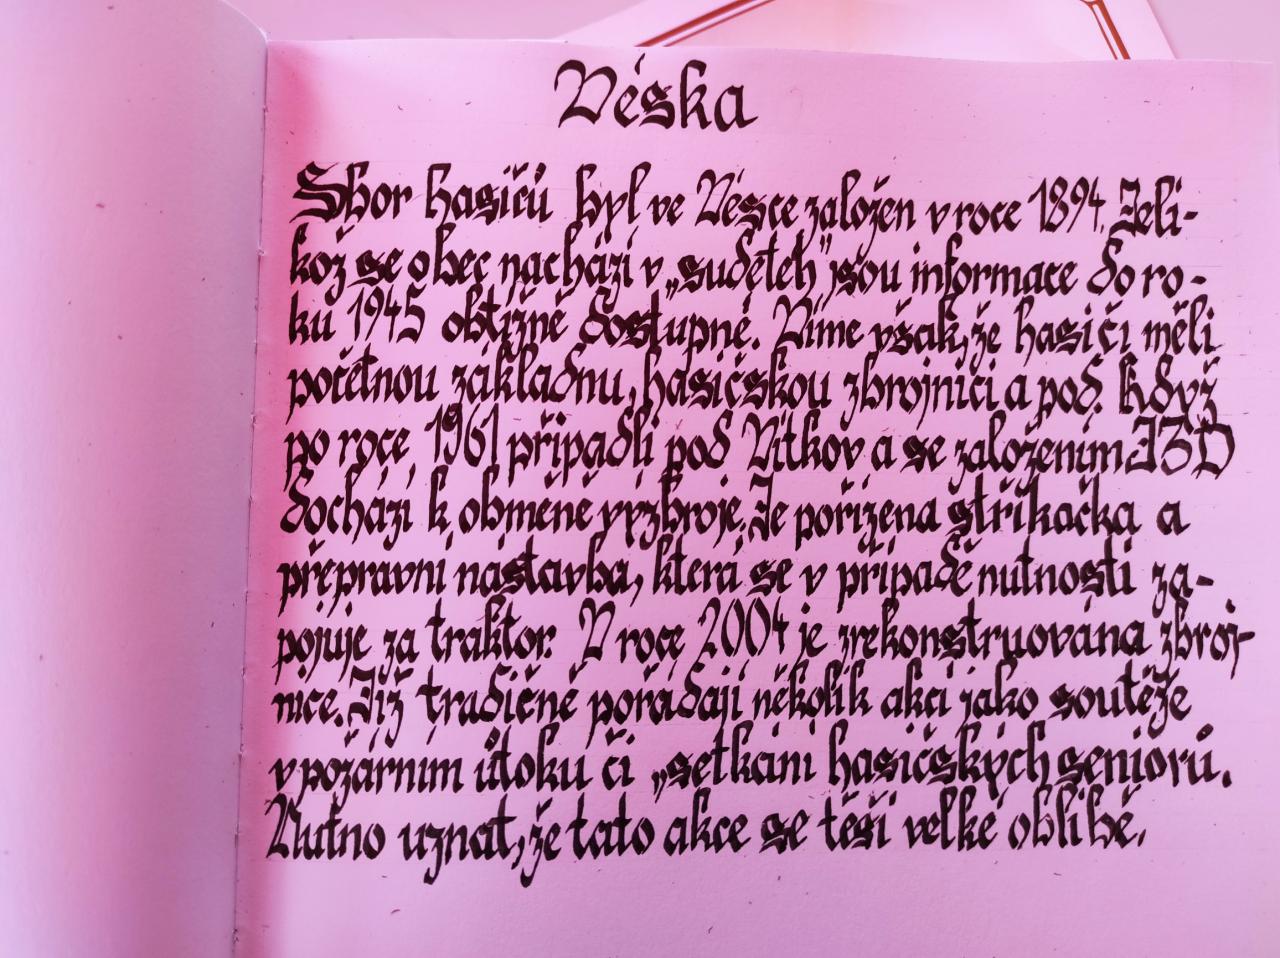 Véska
Sbor hasičů byl ve Vésce založen v roce 1894. Jeli-
kož se obec nachází v „sudeteh" jsou informace do ro-
ku 1945 obtížně dostupné. Víme však, že hasiči měli
početnou základnu, hasičskou zbrojnici a pod. Když
po roce 1961 připadli pod Vítkov a se založením JZD
dochází k obměně výzbroje. Je pořízena stříkačka a
přepravní nástavba, která se v případě nutnosti za-
pojuje za traktor. V roce 2004 je zrekonstruována zbroj-
nice. Již tradičně pořádají několik akcí jako soutěže
v požárním útoku či „setkání hasičských seniorů.
Nutno uznat, že tato akce se těší velké oblibě.